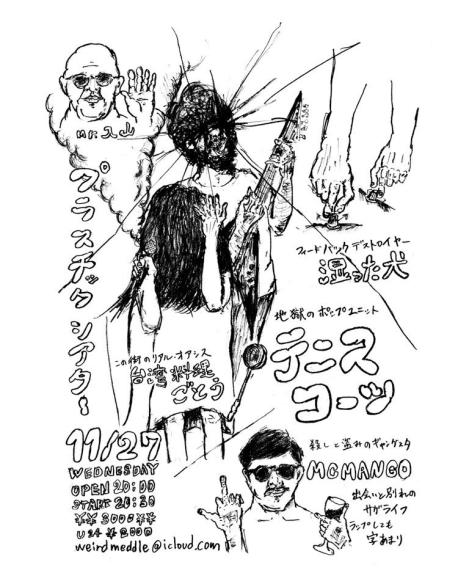 Mr.入山
プラスチックシアター
フィードバックデストロイヤー
湿った犬
地獄のポップユニット
テニス
コーツ
この街のリアル・オアシス
台湾料理
ごとう
11/27
WEDNESDAY
OPEN 20:00
START 20:30
¥¥ 3000 ¥¥
U24 ¥2000
weirdmeddle@icloud.com
殺しと盗みのギャングスタ
MCMANGO
出会いと別れの
サガライフ
ランプしても
字あまり